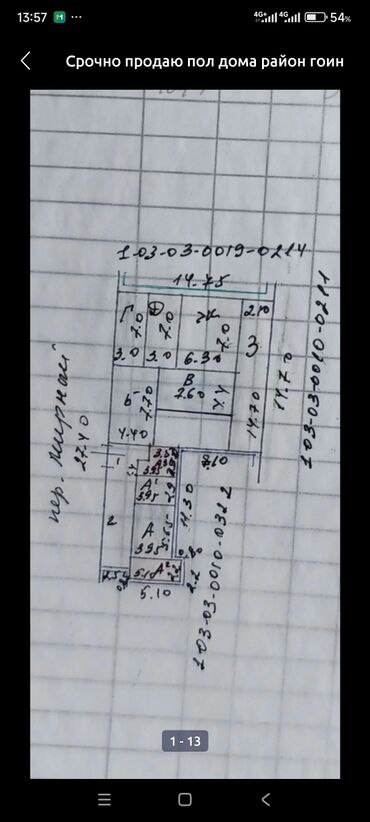 13:57
4G+ 4G 54%
Срочно продаю пол дома район гоин
103-03-0019-0214
14.75
Г
7.0
3.0
Д
7.0
3.0
Ж
7.0
6.30
2.10
3
14.70
14.70
103-03-0010-0211
пер. Мирный
27.40
Б
7.70
4.40
В
7.60
4.4
1
2
А
3.95
5.65
11.30
103-03-0010-0322
2.2
5.10
5.10
1 - 13